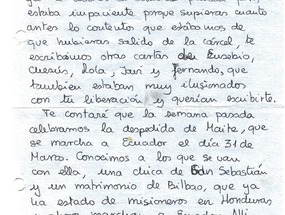 estaba impaciente porque supieras cuanto
antes lo contentos que estábamos de
que hubieras salido de la cárcel, te
escribimos otras cartas de Eusebio,
Chesús, Lola, Javi y Fernando, que
tambien estaban muy ilusionados
con tu liberación y querían escribirte.
Te contaré que la semana pasada
celebramos la despedida de Maite, que
se marcha a Ecuador el día 31 de
Marzo. Conocimos a los que se van
con ella, una chica de San Sebastián
y un matrimonio de Bilbao, que ya
ha estado de misioneros en Honduras